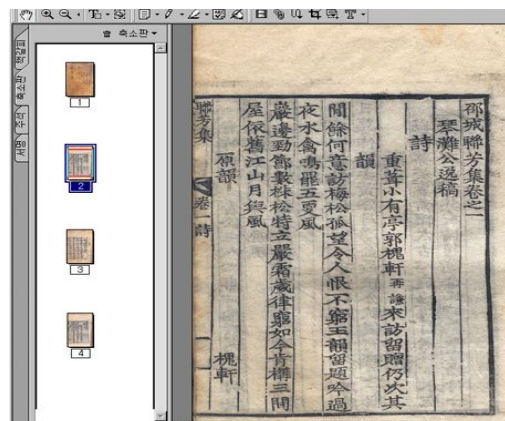 축소판
책갈피
축소판
주석
서명
1
2
3
4
邵城聯芳集卷之一
琴灘公逸稿
詩
重葺小有亭郭槐軒來訪留贈仍次其
韻
閒餘何意訪梅松孤望令人恨不窮玉韻留題吟過
夜水禽鳴罷五更風
巖邊勁節數株松特立嚴霜歲律窮如今肯構三間
屋依舊江山月與風
原韻 槐軒
聯芳集 卷一 詩